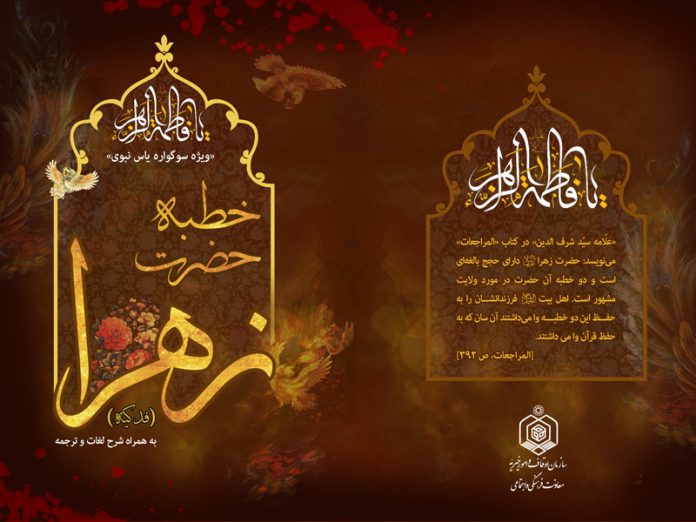 یا فاطمة الزهراء
«ویژه سوگواره یاس نبوی»
خطبه
حضرت
زهرا
(فدکیه)
به همراه شرح لغات و ترجمه
یا فاطمة الزهراء
«علّامه سیّد شرف الدین» در کتاب «المراجعات»
می‌نویسد: حضرت زهرا دارای حجج بالغه‌ای
است و دو خطبه آن حضرت در مورد ولایت
مشهور است. اهل بیت فرزندانشان را به
حفظ این دو خطبه وا می‌داشتند آن سان که به
حفظ قرآن وا می داشتند.
[المراجعات، ص ۳۹۲]
سازمان اوقاف و امور خیریه
معاونت فرهنگی و اجتماعی